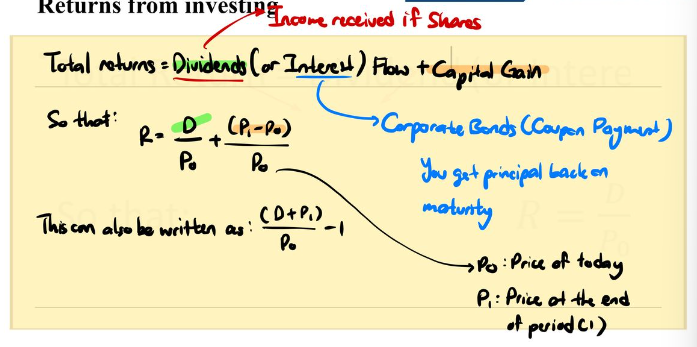 Returns from investing
Income received if Shares
Total returns = Dividends (or Interest) Flow + Capital Gain
So that:
R = D/P₀ + (P₁-P₀)/P₀
Corporate Bonds (Coupon Payment)
You get principal back on
maturity
This can also be written as: (D+P₁)/P₀ - 1
P₀: Price of today
P₁: Price at the end
of period (1)